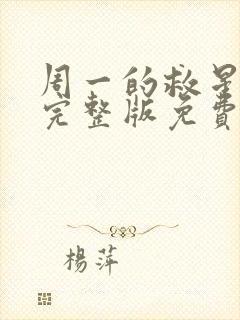 周一的救星
完整版免費
楊萍